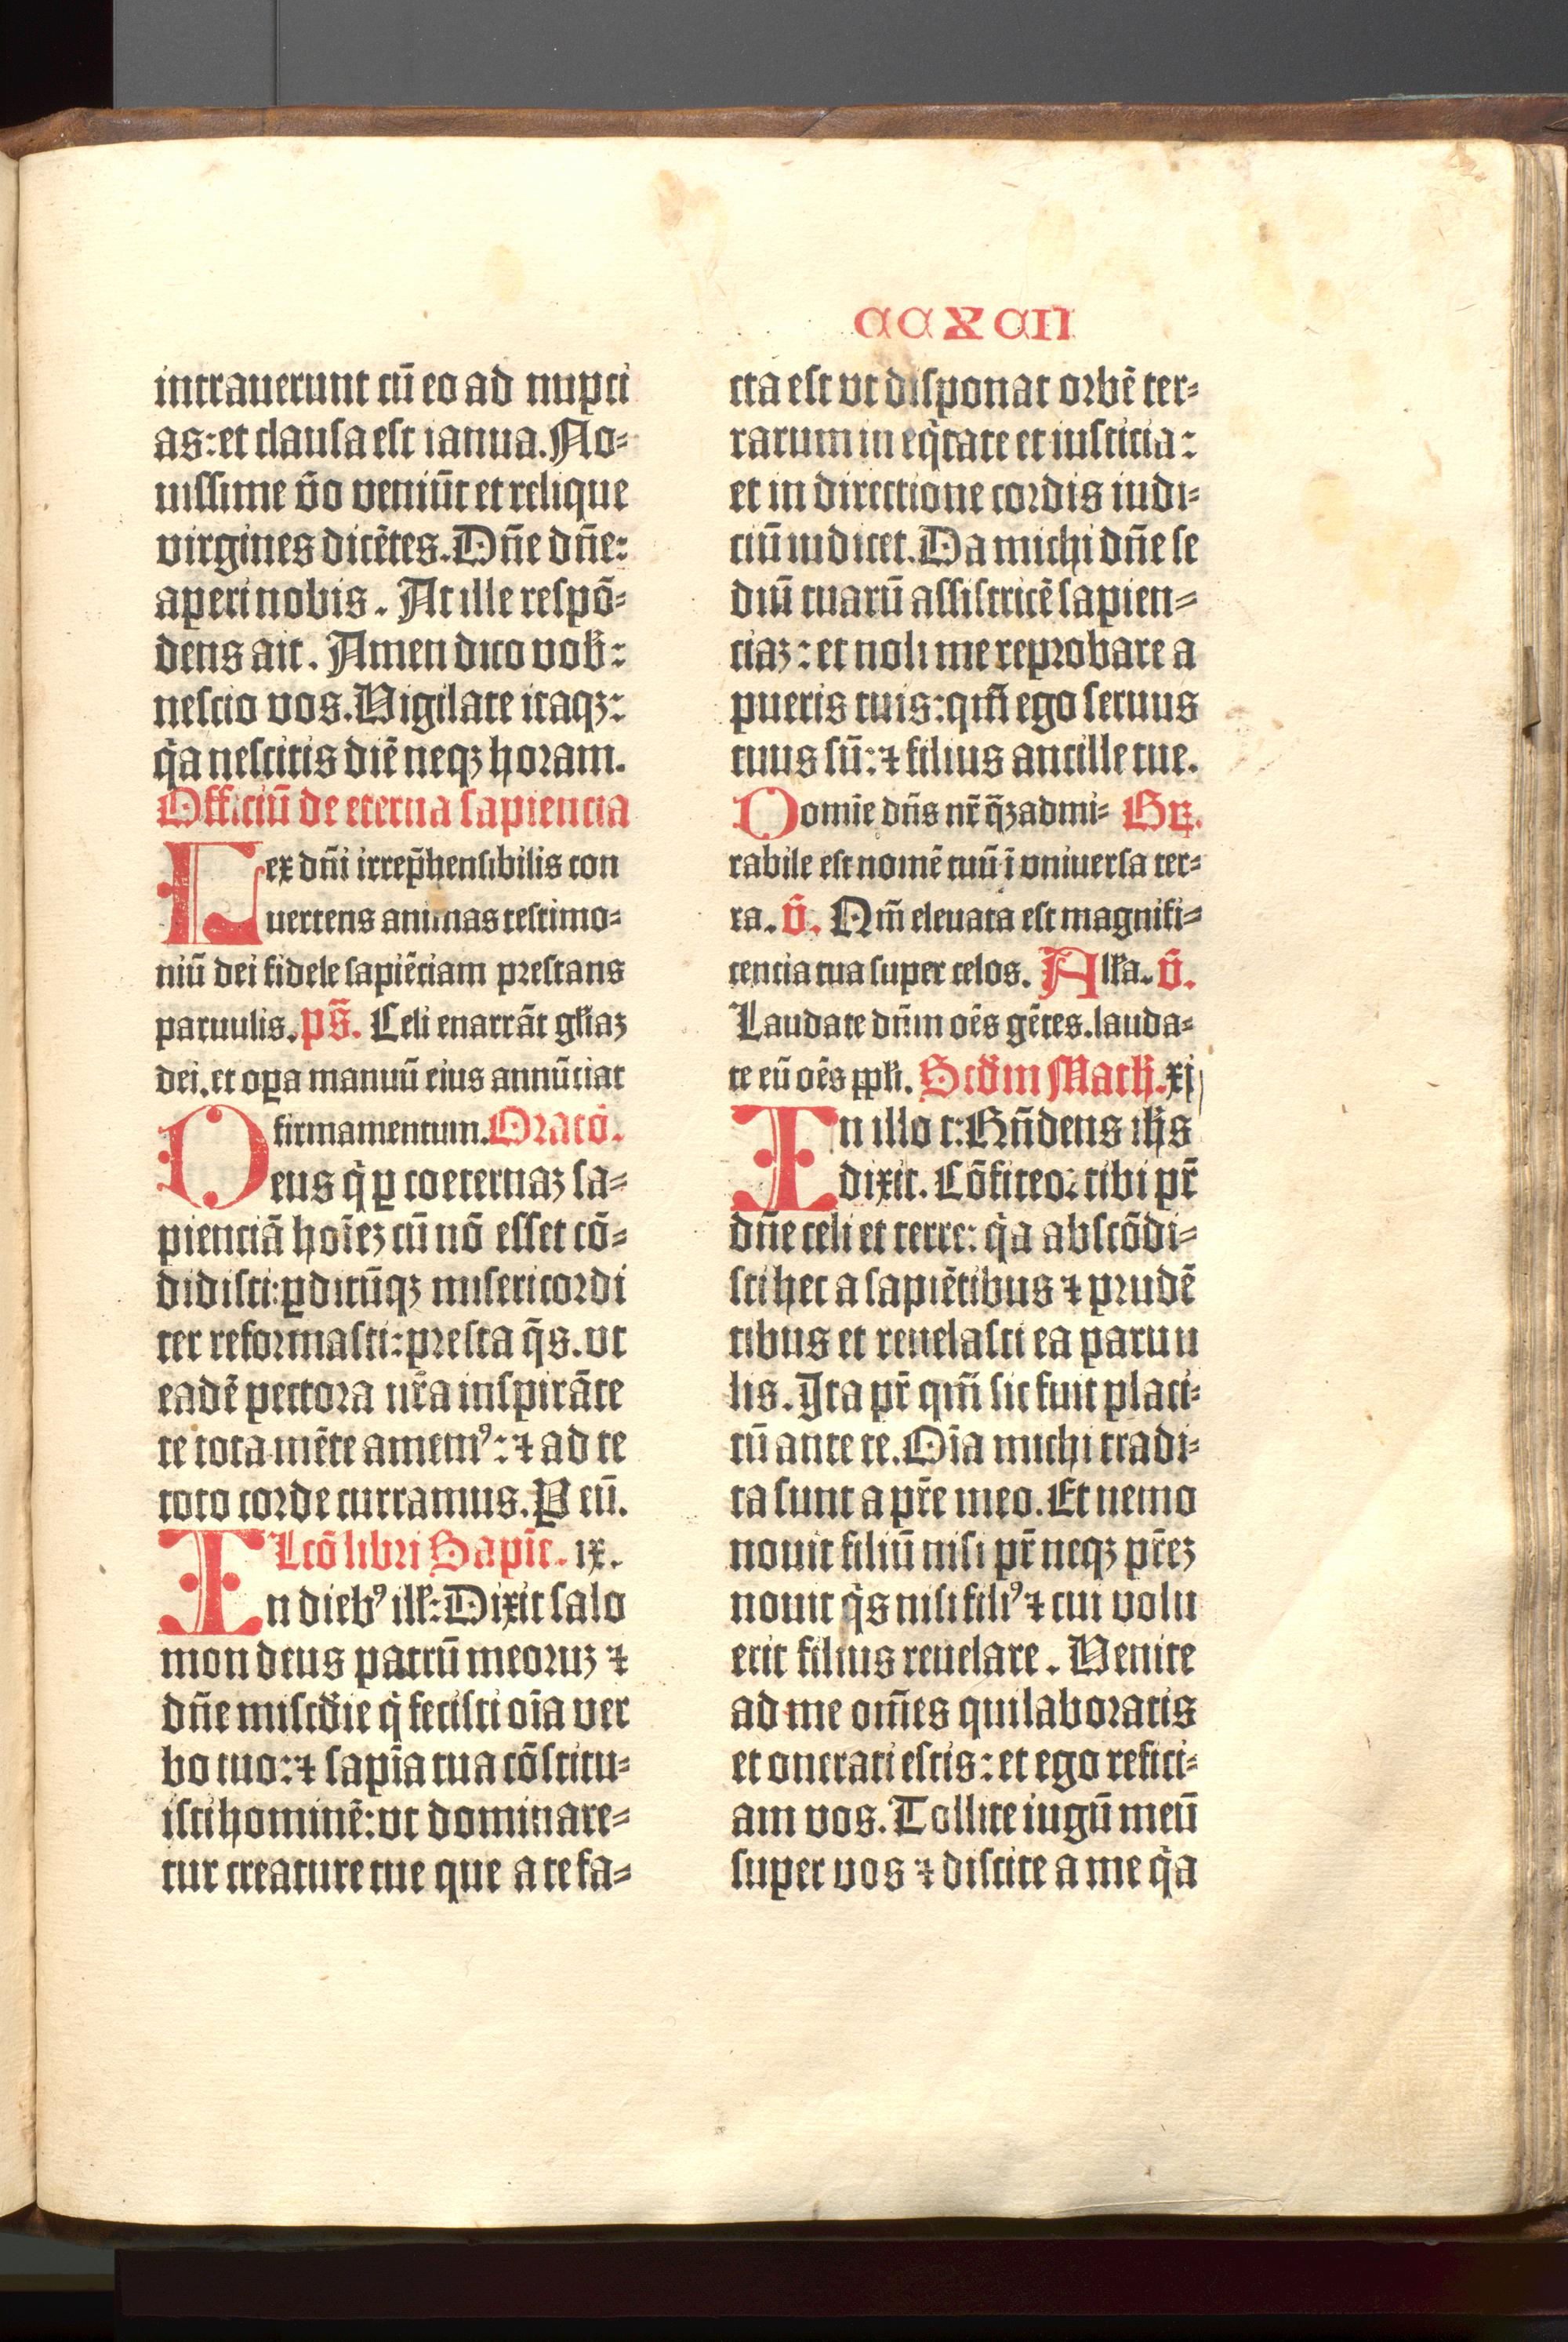 CCXCII
intrauerunt cū eo ad nupci
as: et clausa est ianua. No⸗
uissime v̄o veniūt et relique
virgines dicētes. Dn̄e dn̄e:
aperi nobis. At ille respō⸗
dens ait. Amen dico vob̄:
nescio vos. Vigilate itaqꝫ:
q̄a nescitis diē neqꝫ horam.
Officiū de eterna sapiencia
Lex dn̄i irrep̄hensibilis con
uertens animas testimo⸗
niū dei fidele sapiēciam prestans
paruulis. ps̄. Celi enarrāt gl̄iaꝫ
dei. et oꝑa manuū eius annūciat
firmamentum. Oracō.
Deus q̄ ꝑ coeternaꝫ sa⸗
pienciā hoīeꝫ cū nō esset cō⸗
didisti: ꝑditūqꝫ misericordi
ter reformasti: presta q̄s. vt
eadē pectora nr̄a inspirāte
te tota mēte amemꝰ: ⁊ ad te
toto corde curramus. P eū.
Lcō libri Sapīe. ix.
In diebꝰ ill̄: Dixit salo
mon deus patrū meoruꝫ ⁊
dn̄e miscd̄ie q̄ fecisti oīa ver
bo tuo: ⁊ sapīa tua cōstitu⸗
isti hominē: vt dominare⸗
tur creature tue que a te fa⸗
cta est vt disponat orbē ter⸗
rarum in eq̄tate et iusticia:
et in directione cordis iudi⸗
ciū iudicet. Da michi dn̄e se
diū tuarū assistricē sapien⸗
ciaꝫ: et noli me reprobare a
pueris tuis: qm̄ ego seruus
tuus sū: ⁊ filius ancille tue.
Domīe dn̄s nr̄ q̄ꝫ admi⸗ Gr̄.
rabile est nomē tuū ī vniuersa ter⸗
ra. v̄. Qm̄ eleuata est magnifi⸗
cencia tua super celos. All̄a. v̄.
Laudate dn̄m oēs gētes. lauda⸗
te eū oēs ppl̄i. Scd̄m Math̄. xj
In illo t: Rn̄dens ih̄s
dixit. Cōfiteor tibi pr̄
dn̄e celi et terre: q̄a abscōdi⸗
sti hec a sapiētibus ⁊ prudē
tibus et reuelasti ea paruu
lis. Ita pr̄ qm̄ sic fuit placi⸗
tū ante te. Oīa michi tradi⸗
ta sunt a pr̄e meo. Et nemo
nouit filiū nisi pr̄ neqꝫ pr̄eꝫ
nouit q̄s nisi filiꝰ ⁊ cui volu
erit filius reuelare. Venite
ad me om̄es qui laboratis
et onerati estis: et ego refici⸗
am vos. Tollite iugū meū
super vos ⁊ discite a me q̄a